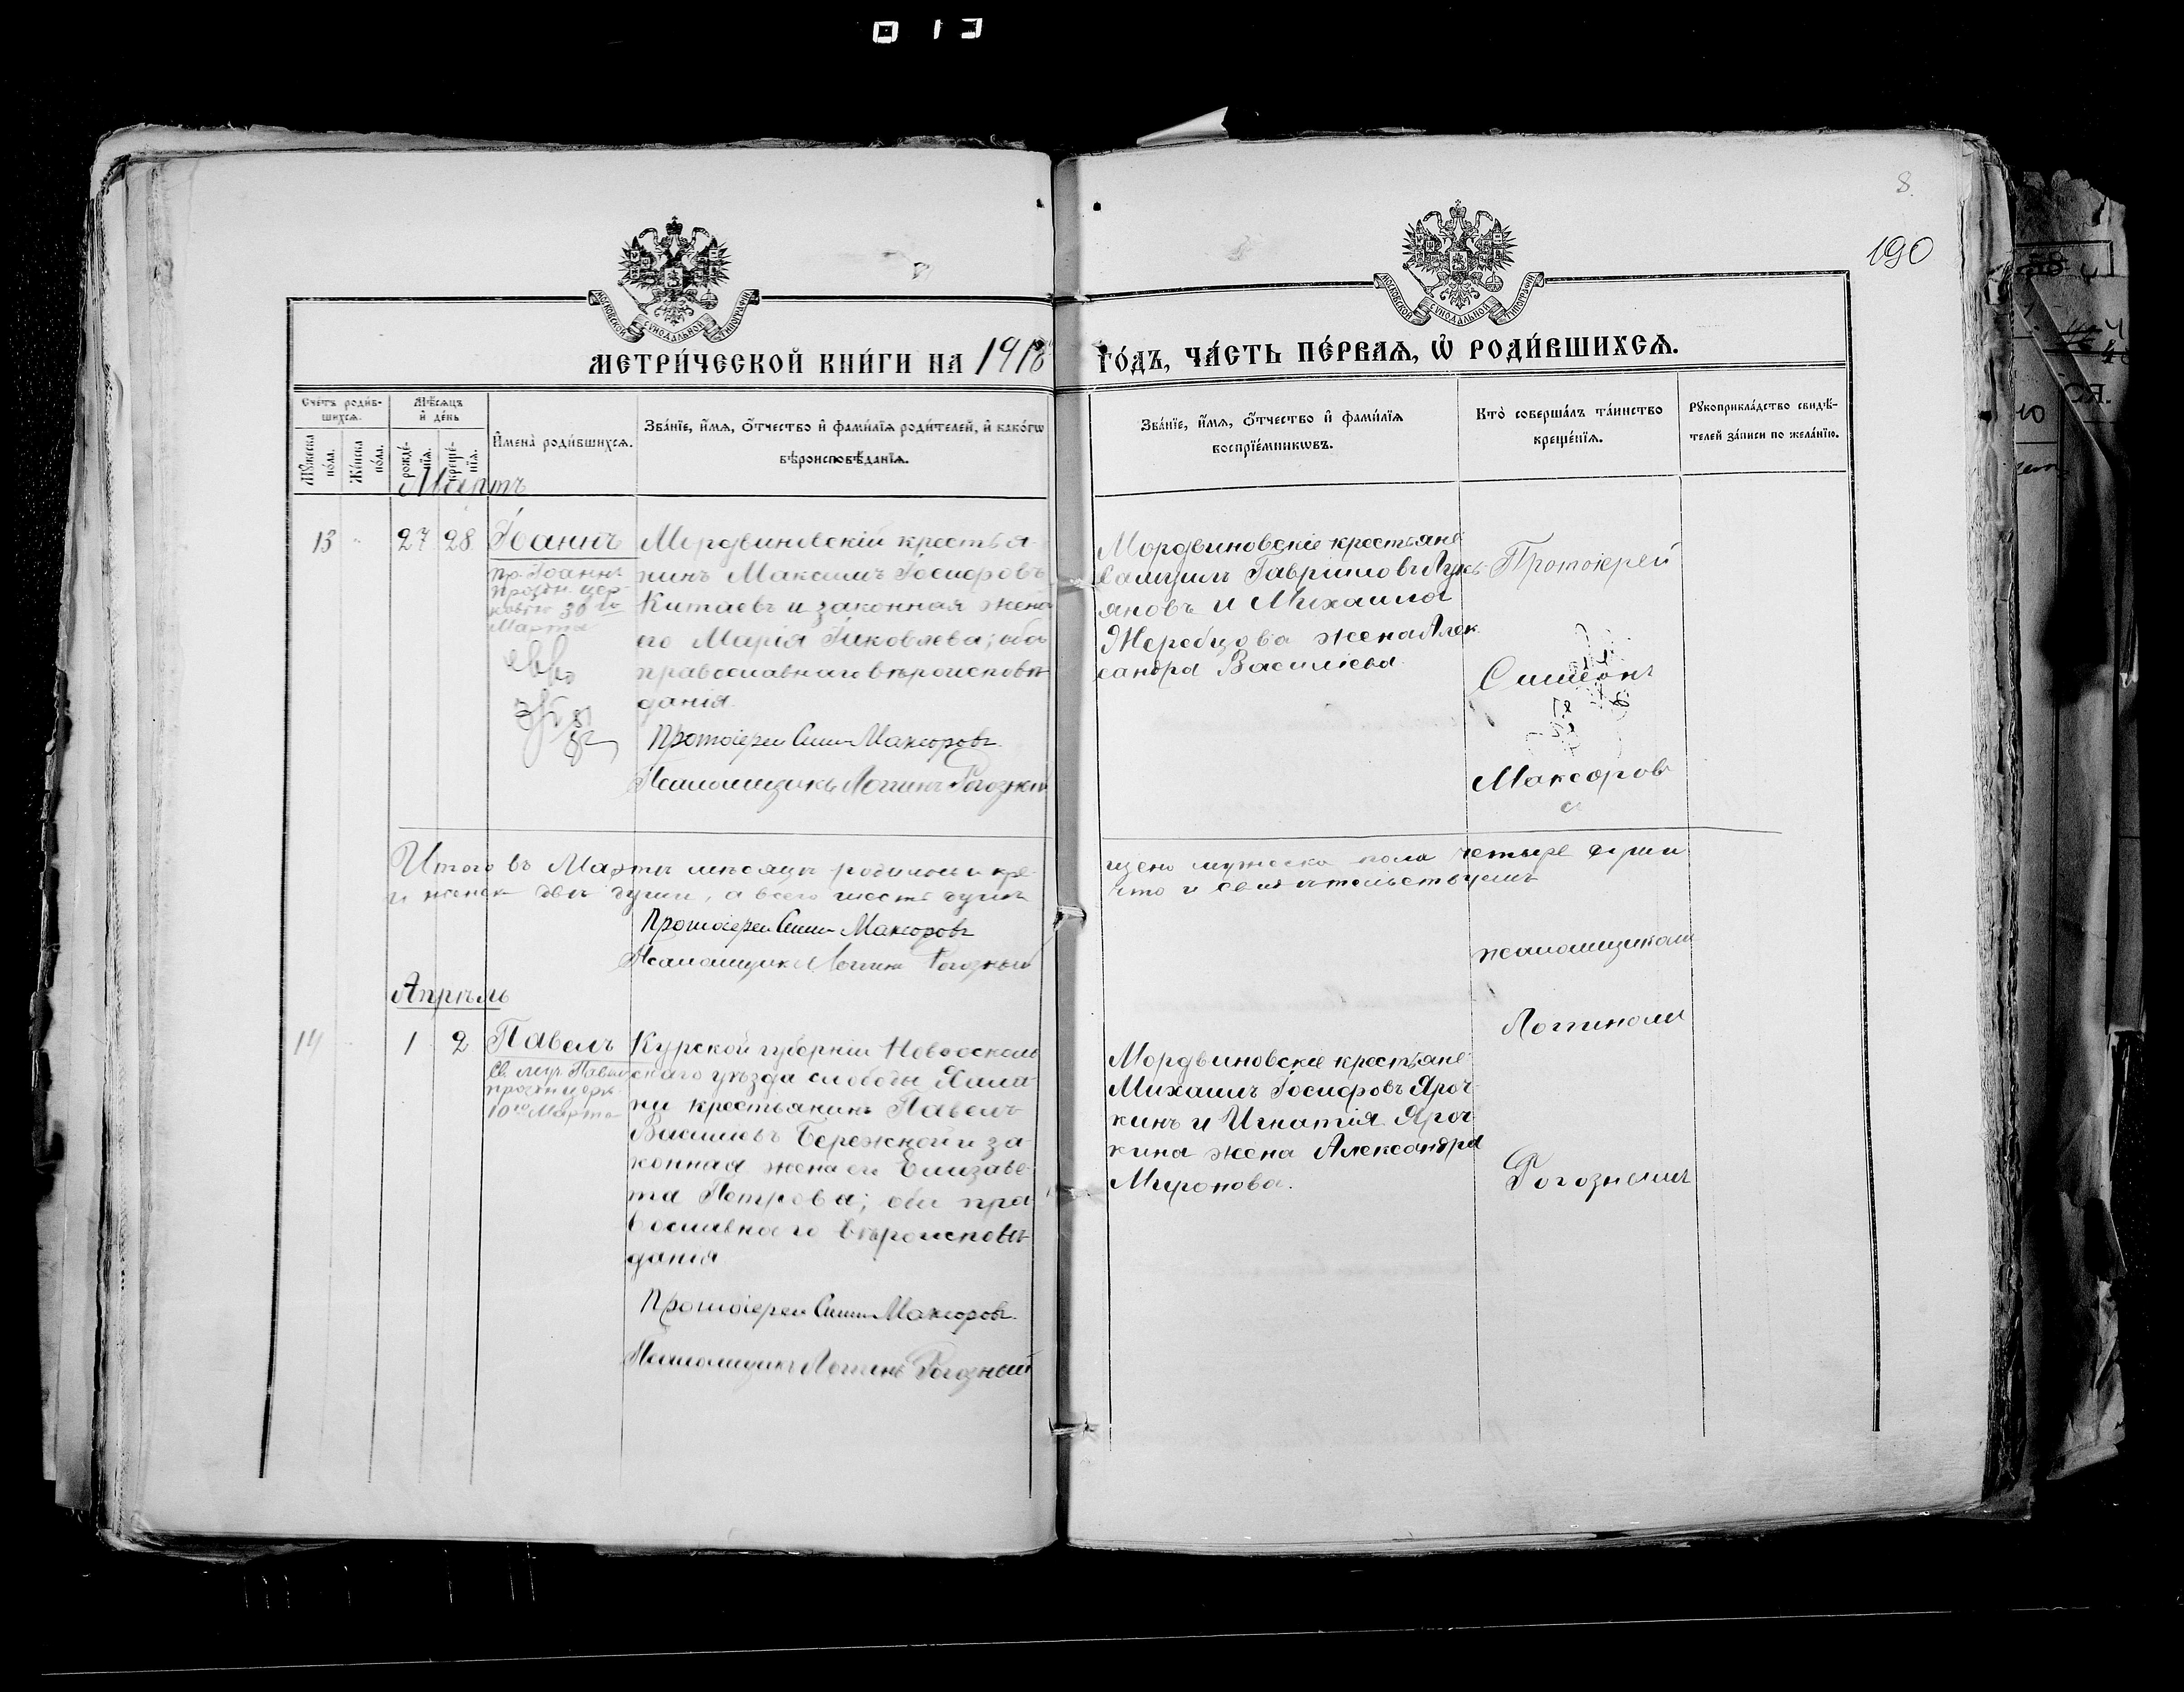 013
8
190
МОСКОВСКОЙ СѴНОДАЛЬНОЙ ТИПОГРАФІИ
МОСКОВСКОЙ СѴНОДАЛЬНОЙ ТИПОГРАФІИ
МЕТРИ́ЧЕСКОЙ КНИ́ГИ НА 1918
ГО́ДЪ, ЧА́СТЬ ПЕ́РВАЯ, Ѡ҆ РОДИ́ВШИХСЯ.
Сче́тъ роди́в-
шихся.
Мѣ́сяцъ
и҆ де́нь
Мꙋ́жеска
по́ла.
Же́нска
по́ла.
рожде́-
нїя.
креще́-
нїя.
И҆мена̀ роди́вшихся.
Зва́нїе, и҆́мя, ѻ҆́тчество и҆ фами́лїя роди́телей, и҆ како́гѡ
вѣроисповѣ́данїя.
Зва́нїе, и҆́мя, ѻ҆́тчество и҆ фами́лїя
воспрїе́мникѡвъ.
Кто̀ соверша́лъ та́инство
креще́нїя.
Рꙋкоприкла́дство свидѣ́-
телей за́писи по жела́нїю.
Мартъ
13 27 28 Іоаннъ
пр. Іоаннъ
празн. цер-
ковью 30го
Марта
Мордвиновскій крестья-
нинъ Максимъ Іосифовъ
Китаевъ и законная жена
его Марія Яковлева; оба
православнаго вѣроисповѣ-
данія.
Протоіерей Симе Максоровъ
Псаломщикъ Логгинъ Рогозный
Мордвиновскіе крестьяне
Самуилъ Гавріиловъ Лукь-
яновъ и Михаила
Жеребцова жена Алек-
сандра Василіева.
Протоіерей
Симеонъ
Максоровъ
съ
Итого въ Мартѣ мѣсяцѣ родилось и кре-
щено мужеска пола четыре души
и женск двѣ души, а всего шесть душъ
что и свидѣтельствуемъ
Протоіерей Симе Максоровъ
Псаломщикъ Логгинъ Рогозный
псаломщикомъ
Логгиномъ
Рогознымъ
Апрѣль
14 1 2 Павелъ
Св. муч. Павелъ
празн. церк.
10го Марта
Курской губерніи Новооскол-
скаго уѣзда слободы
крестьянинъ Павелъ
Василіевъ Бережной и за-
конная жена его Елизаве-
та Петрова; оба пра-
вославнаго вѣроисповѣ-
данія
Протоіерей Симе Максоровъ
Псаломщикъ Логгинъ Рогозный
Мордвиновскіе крестьяне
Михаилъ Іосифовъ Яроч-
кинъ и Игнатія Яроч-
кина жена Александра
Миронова.